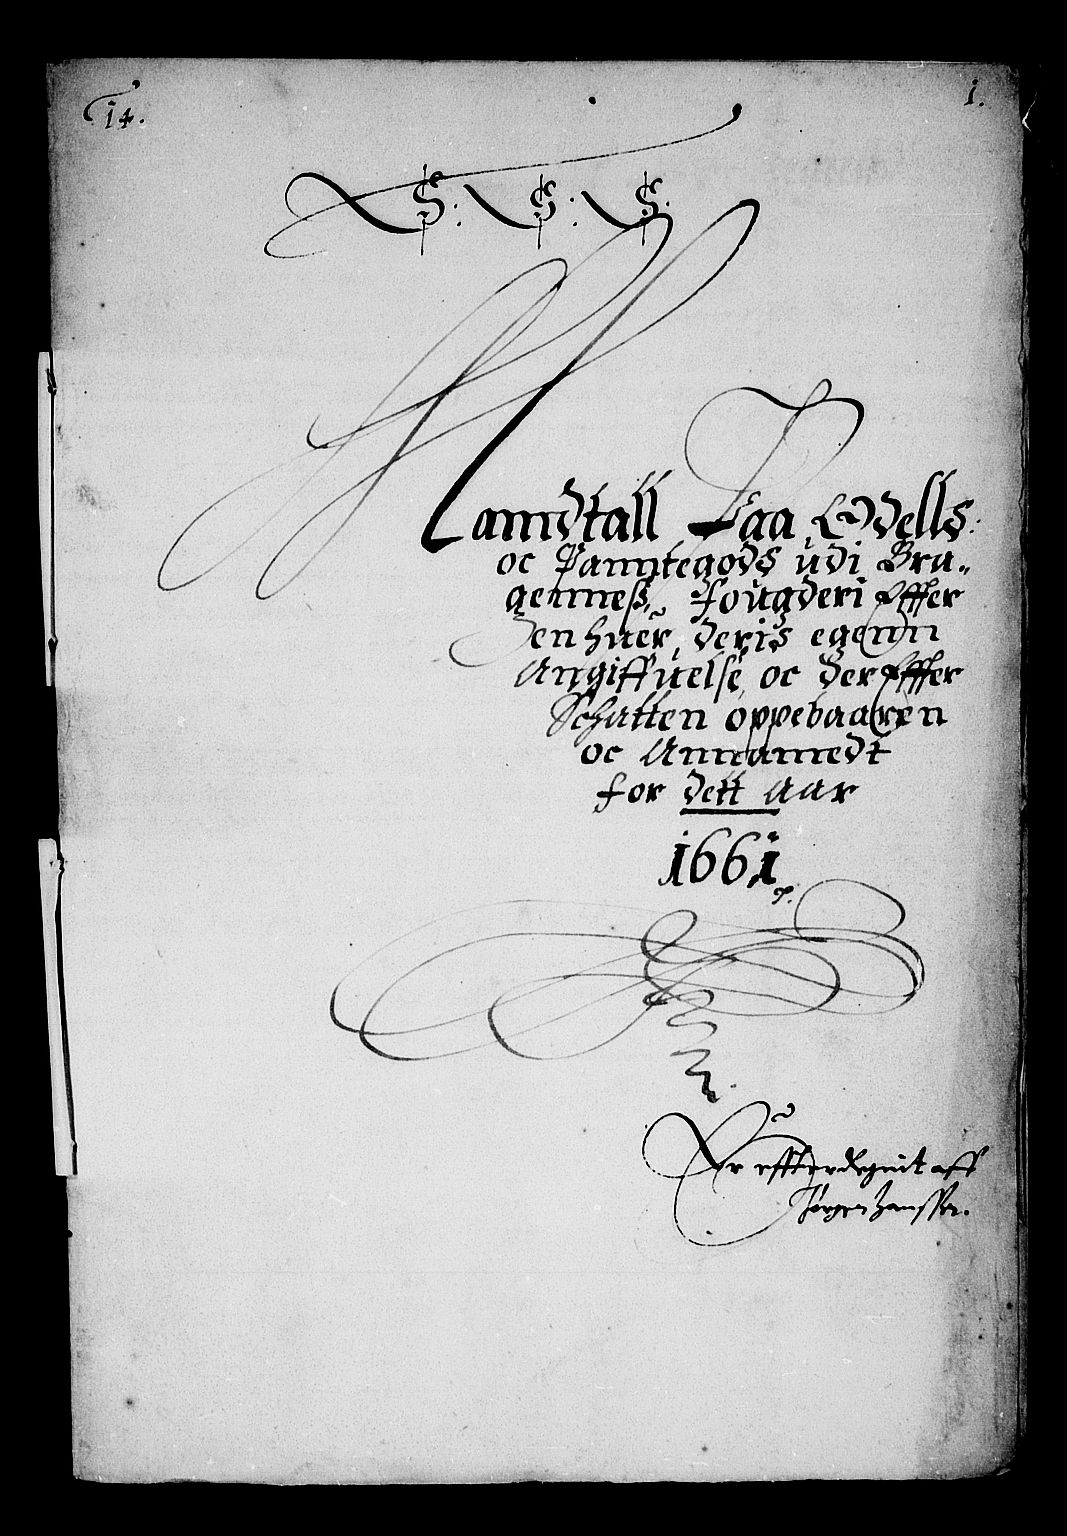 14.
1.
S: S: S:
Manndtall Paa Odells:
oc Panntegods udi Bra-
gernness, Fougderi Effter
den huer, deris egenn
Angiffuelse, oc der Effter
Schatten oppebaaren
oc Annamedt
for dett Aar
1661
Er effterregnit aff
Jørgen Hansen.